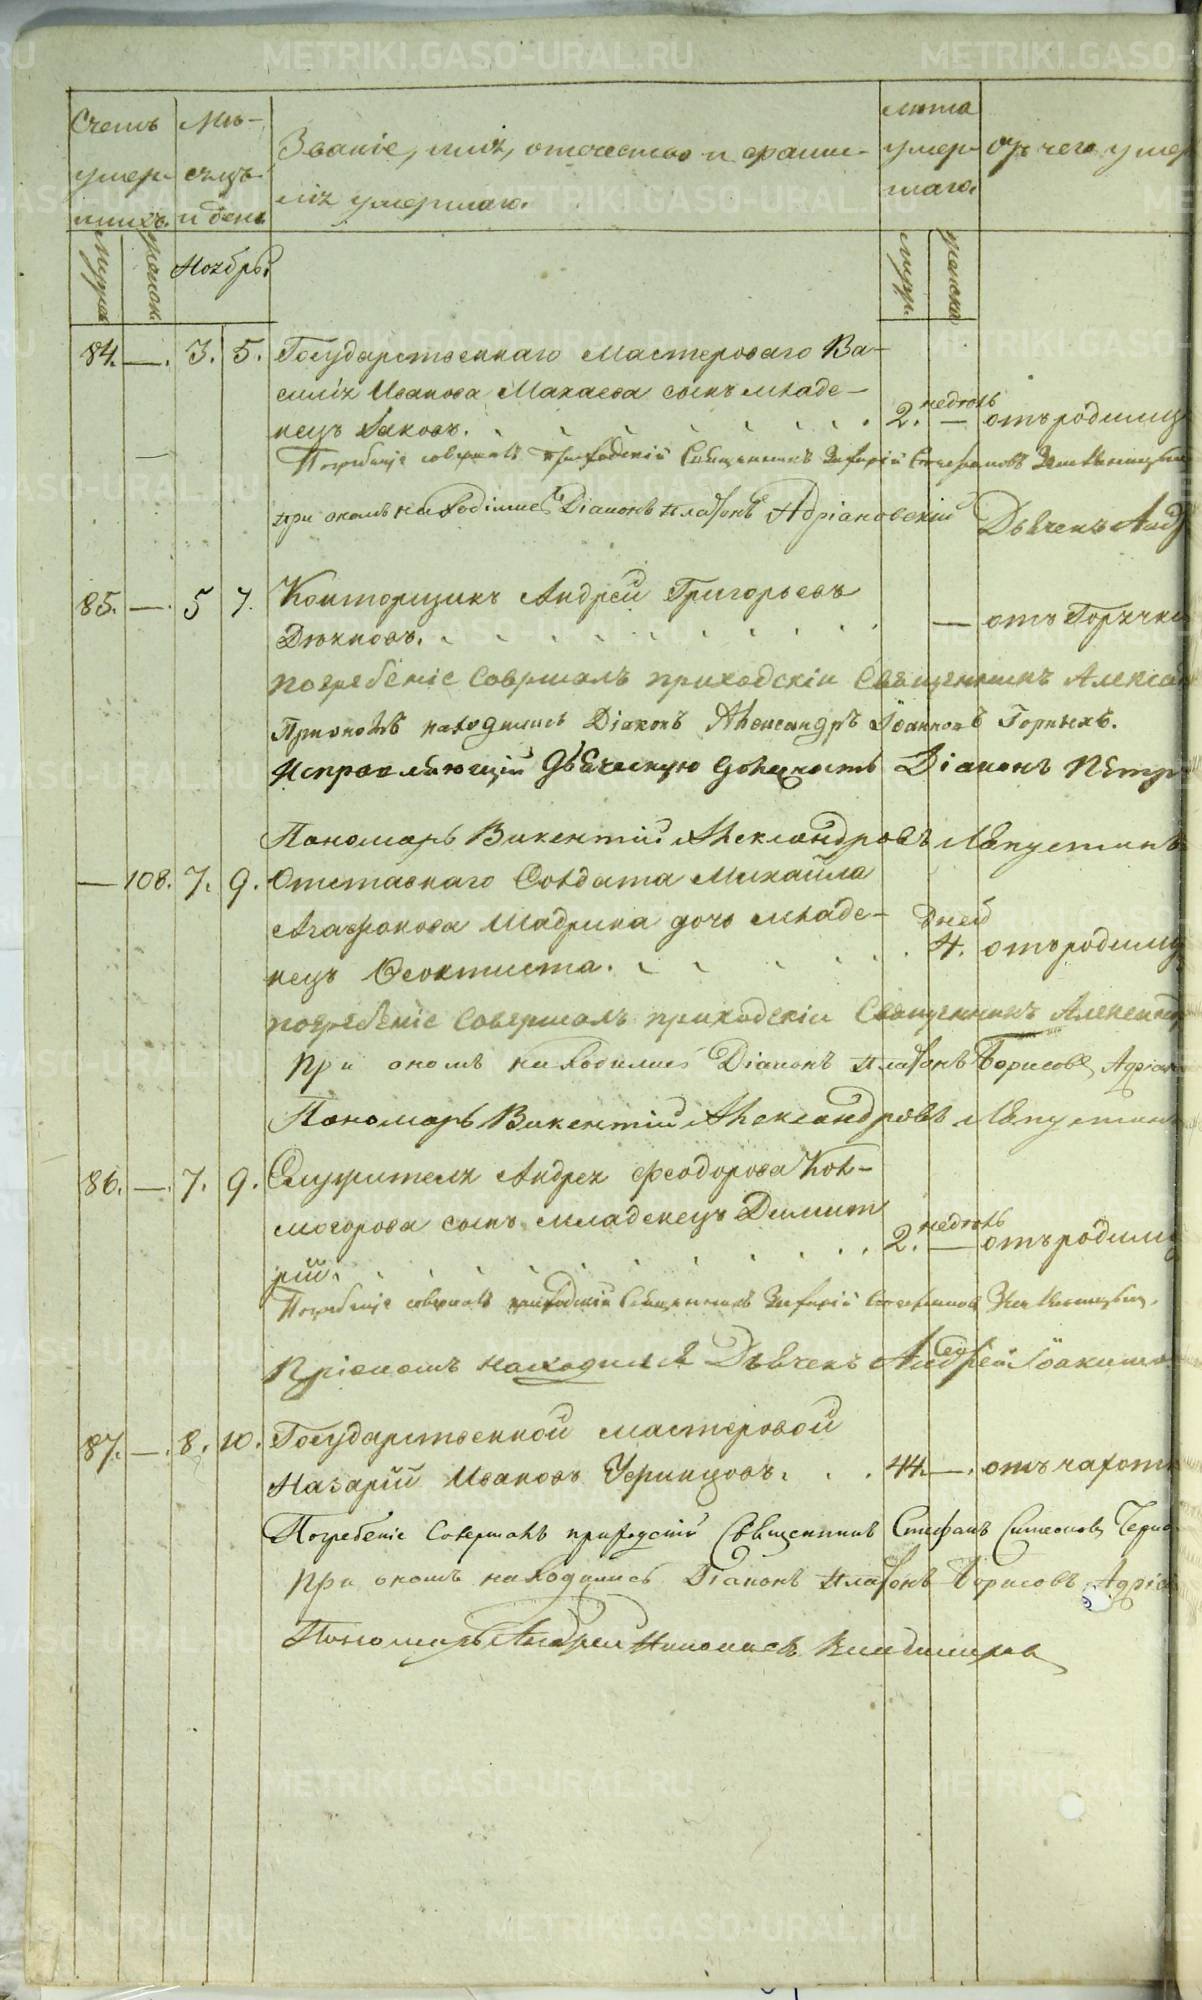 METRIKI.GASO-URAL.RU
Счетъ умер- шихъ.
Мѣ- сяцъ и день
Званіе, имя, отчество и фами- лія умершаго.
лѣта умер- шаго.
отъ чего умер
мужск.
женск.
Ноябрь.
муж.
женск.
84. — 3. 5. Государственнаго мастероваго Ва-
силія Иванова Макаева сынъ младе-
недѣль
нецъ Іаковъ. 2. — отъ родимц
Погребеніе совершалъ приходскій Священникъ Захарій Стефановъ
при ономъ находились Діаконъ Платонъ Адріановскій Дьячекъ Анд
85. — 5 7. Конторщикъ Андрей Григорьевъ
Дюковъ. — отъ Горячки
погребеніе Совершалъ приходскіи Священникъ Алексан
При ономъ находились Діаконъ Александръ Іоанновъ Горныхъ.
Исправляющій Дьяческую должность Діаконъ Петр
Пономарь Викентій Александровъ Лапустинъ
— 108. 7. 9. Отставнаго Солдата Михаила
Агафонова Шадрина дочь младе-
дней
нецъ Ѳеоктиста. 4. отъ родимц
погребеніе Совершалъ приходскіи Священникъ Александ
При ономъ находились Діаконъ Платонъ Борисовъ Адріан
Пономарь Викентій Александровъ Лапустин
86. — 7. 9. Служителя Андрея Феодорова Кол-
могорова сынъ младенецъ Димит
недѣль
рій. 2. — отъ родимц
Погребеніе совершалъ приходскій Священникъ Захарій Стефановъ
При ономъ находился Дьячекъ Андрей Іоакимо
87. — 8. 10. Государственной мастеровой
Назарій Ивановъ Усринцовъ. 44. — отъ чахотк
Погребеніе Совершалъ приходскій Священникъ Стефанъ Симеоновъ Черно
При ономъ находились Діаконъ Платонъ Борисовъ Адріа
Пономарь Андрей Николаевъ Владимировъ